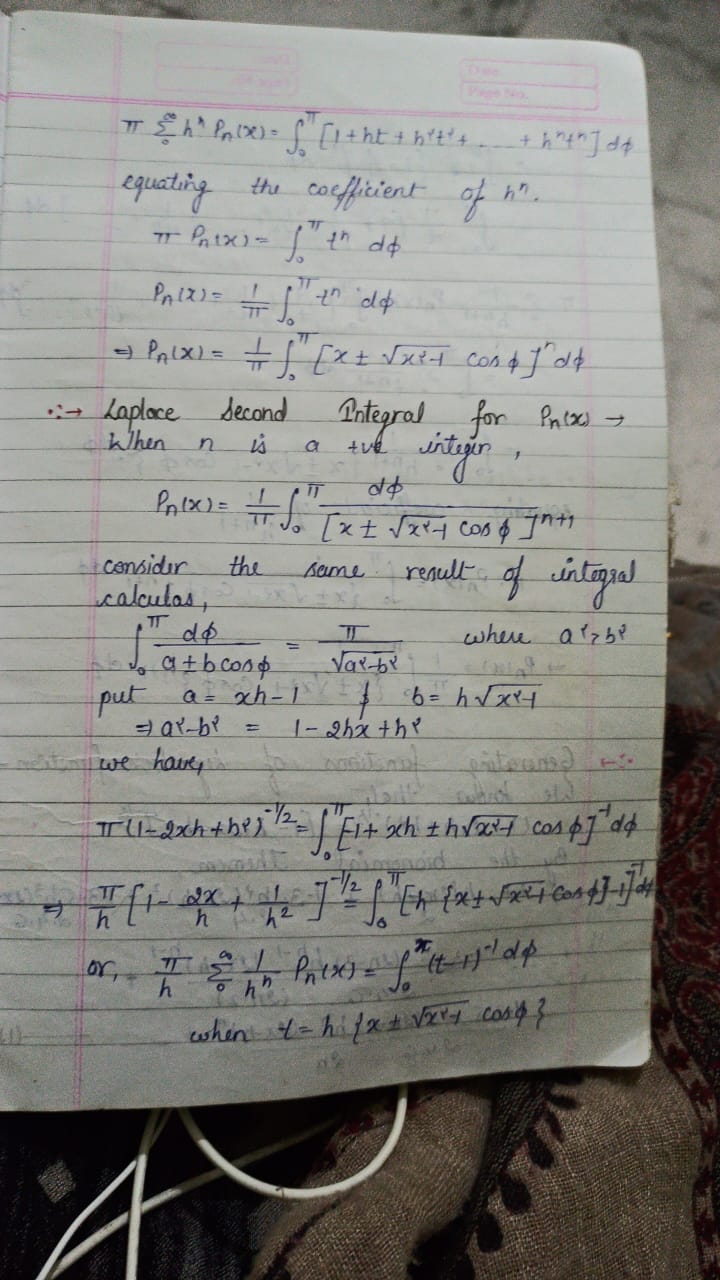 Date:
Page No.
π ∞Σ0 hⁿ Pn(x) = ∫0^π [1 + ht + h²t² + ---- + hⁿtⁿ] dφ
equating the coefficient of hⁿ.
π Pn(x) = ∫0^π tⁿ dφ
Pn(x) = 1/π ∫0^π tⁿ dφ
⇒ Pn(x) = 1/π ∫0^π [x ± √x²-1 cos φ]ⁿ dφ
Laplace Second Integral for Pn(x) →
When n is a +ve integer,
Pn(x) = 1/π ∫0^π dφ / [x ± √x²-1 cos φ]ⁿ⁺¹
consider the same result of integral
calculas,
∫0^π dφ / a ± b cos φ = π / √a²-b² where a² > b²
put a = xh - 1 & b = h√x²-1
⇒ a²-b² = 1 - 2hx + h²
we have,
π (1 - 2xh + h²)^-1/2 = ∫0^π [-1 + xh ± h√x²-1 cos φ]^-1 dφ
⇒ π/h [1 - 2x/h + 1/h²]^-1/2 = ∫0^π [h {x ± √x²-1 cos φ} - 1]^-1 dφ
or, π/h ∞Σ0 1/hⁿ Pn(x) = ∫0^π (t - 1)^-1 dφ
when t = h {x ± √x²-1 cos φ}